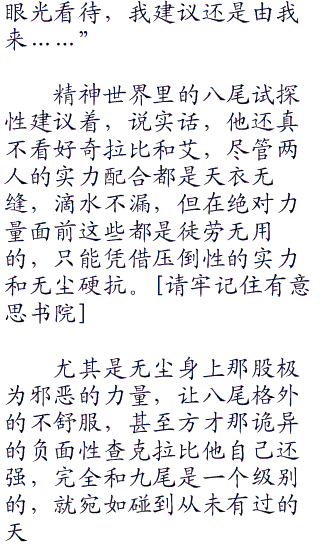 眼光看待，我建议还是由我
来……”
精神世界里的八尾试探
性建议着，说实话，他还真
不看好奇拉比和艾，尽管两
人的实力配合都是天衣无
缝，滴水不漏，但在绝对力
量面前这些都是徒劳无用
的，只能凭借压倒性的实力
和无尘硬抗。[请牢记住有意
思书院]
尤其是无尘身上那股极
为邪恶的力量，让八尾格外
的不舒服，甚至方才那诡异
的负面性查克拉比他自己还
强，完全和九尾是一个级别
的，就宛如碰到从未有过的
天